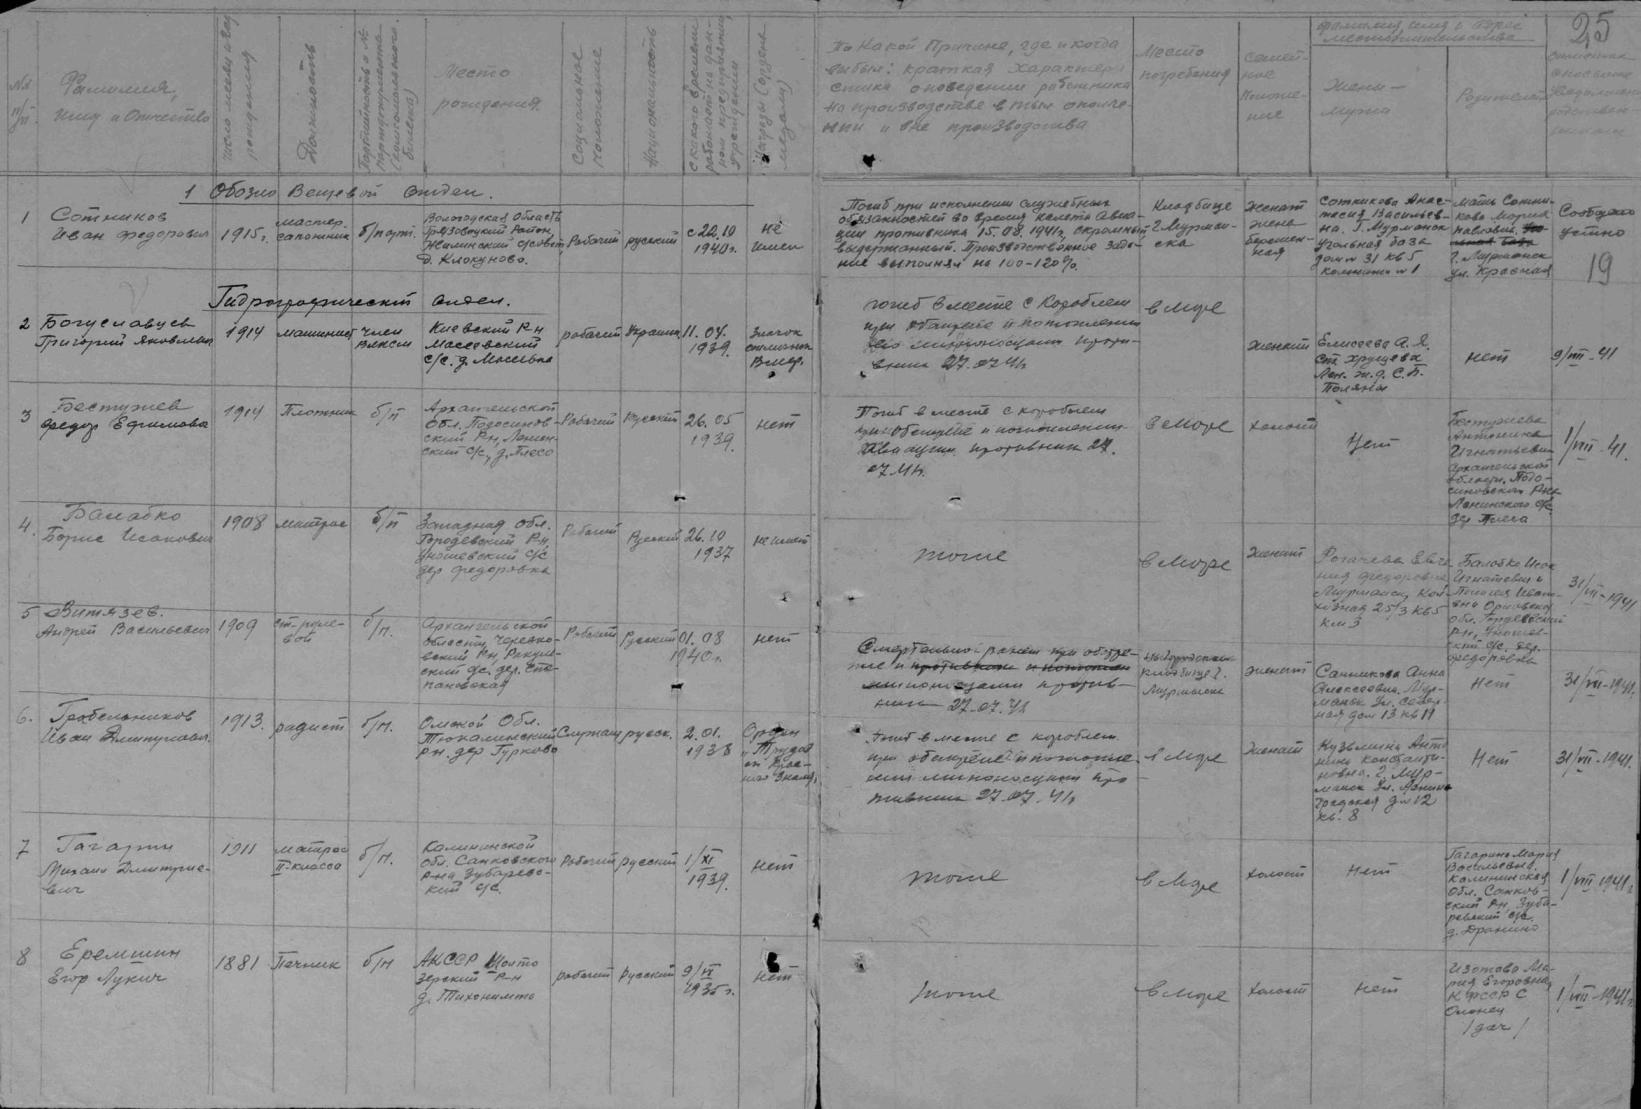 25
№№ п/п.
Фамилия,
имя и Отчество
число месяц и год
рождения
Должность
Место
рождения
Социальное
положение
Национальность
с какого времени
работает на дан-
ном предприятии
Награды (ордена
медали)
По какой причине, где и когда
выбыл: краткая характери
стика о поведении работника
на производстве в тыл ополче-
нии и вне производства
Место
погребения
Семей-
ное
положе-
ние
Жены —
мужа
Родителей
1 Обозно Вещевой отдел.
1
Сотников
Иван Федорович
1915г.
мастер.
сапожник
б/парт.
Вологодская область
Грязовецкий Район,
Д. Клокуново.
Рабочий
русский
с 22.10
1940г.
не
имел
Погиб при исполнении служебных
обязанностей во время налета Авиа-
ции противника 15.08.1941г. скромный
выдержанный. Производственное зада-
ние выполнял на 100-120%.
Кладбище
г. Мурман-
ска
женат
жена
беремен-
ная
Сотникова Анас-
тасия Васильев-
на. г. Мурманск
Угольная база
дом № 31 кв 5
комната № 1
Мать Сотни-
кова Мария
Павловна.
г. Мурманск
ул. Красная
Сообщено
устно
19
Гидрографический отдел.
2
Богуславцев
Григорий Яковлевич
1914
машинист
член
ВЛКСМ
Киевский Р-н
Масеевский
с/с. д.
рабочий
Украинец
11.04.
1939.
Значок
отличник
погиб вместе с кораблем
при обстреле и потоплении
его миноносцами проти-
вника 27.07.41г.
в море
женат
Елисеева А. Я.
ст. Хрущева
Лен. ж.д. С.П.
Поляны
нет
9/VIII-41
3
Бестужев
Федор Ефимович
1914
Плотник
б/п
Архангельской
Обл. Подосинов-
ский Р-н, Ленин-
ский с/с, д. Плесо
Рабочий
Русский
26.05
1939.
нет
Погиб вместе с кораблем
при обстреле и потоплении
противника 27.
07.41г.
в море
холост
Нет
Бестужева
Антонина
Игнатьевна
Архангельской
области. Подо-
синовский Р-н
Ленинского с/с
дер Плеса
1/VIII-41.
4.
Балабко
Борис Исакович
1908
матрос
б/п
Западная обл.
Гордеевский Р-н
Уношевский с/с
дер Федоровка
Рабочий
Русский
26.10
1937
не имеет
тоже
в море
женат
Рогачева Евге
ния Федоровна
Мурманск, Кол-
хозная 25/3 кв 5
км 3
Балабко Исак
Игнатович и
Орловской
обл. Гордеевский
Р-н, Уношев-
ский с/с. дер.
Федоровка
31/VII-1941
5
Витязев.
Андрей Васильевич
1909
ст. руле-
вой
б/п.
Архангельской
области, Черевко-
вский Р-н, Ракуль-
ский с/с. дер. Сте-
пановская
Рабочий
Русский
01.08
1940г.
нет
Смертельно ранен при обстре-
ле и противника и потоплен
миноносцами против-
ника 27.07.41
на городском
кладбище г.
Мурманска
женат
Санникова Анна
Алексеевна. Мур-
манск ул. Север-
ная дом 13 кв 19
Нет
31/VII-1941.
6.
Гробельников
Иван Дмитриевич
1913.
радист
б/п.
Омской Обл.
Тюкалинский
р-н. дер Гурково
Служащ
русск.
2.01.
1938
Орден
"Трудов
ое Крас-
ное Знамя"
Погиб вместе с кораблем
при обстреле и потопле-
нии миноносцами про-
тивника 27.07.41г
в море
женат
Кузьмина Анто
нина Константи-
новна. г. Мур-
манск ул. Ленин-
градская дом 12
кв. 8
Нет
31/VII-1941.
7
Гагарин
Михаил Дмитрие-
вич
1911
матрос
II класса
б/п.
Калининской
обл. Санковского
р-на Зубарев-
кий с/с.
Рабочий
русский
1/XI
1939.
нет
тоже
в море
холост
Нет
Гагарина Мария
Васильевна.
Калининская
Обл. Санков-
ский р-н, Зуба-
ревский с/с.
д. Дранино
1/VIII-1941г
8
Еремшин
Егор Лукич
1881
Печник
б/п
АКССР Шелто
зерский Р-н
д. Тихоништо
рабочий
русский
9/VI
1935г.
нет
тоже
в море
холост
нет
Изотова Ма-
рия Егоровна,
КФССР С
Олонец
/дач/
1/VIII-1941г